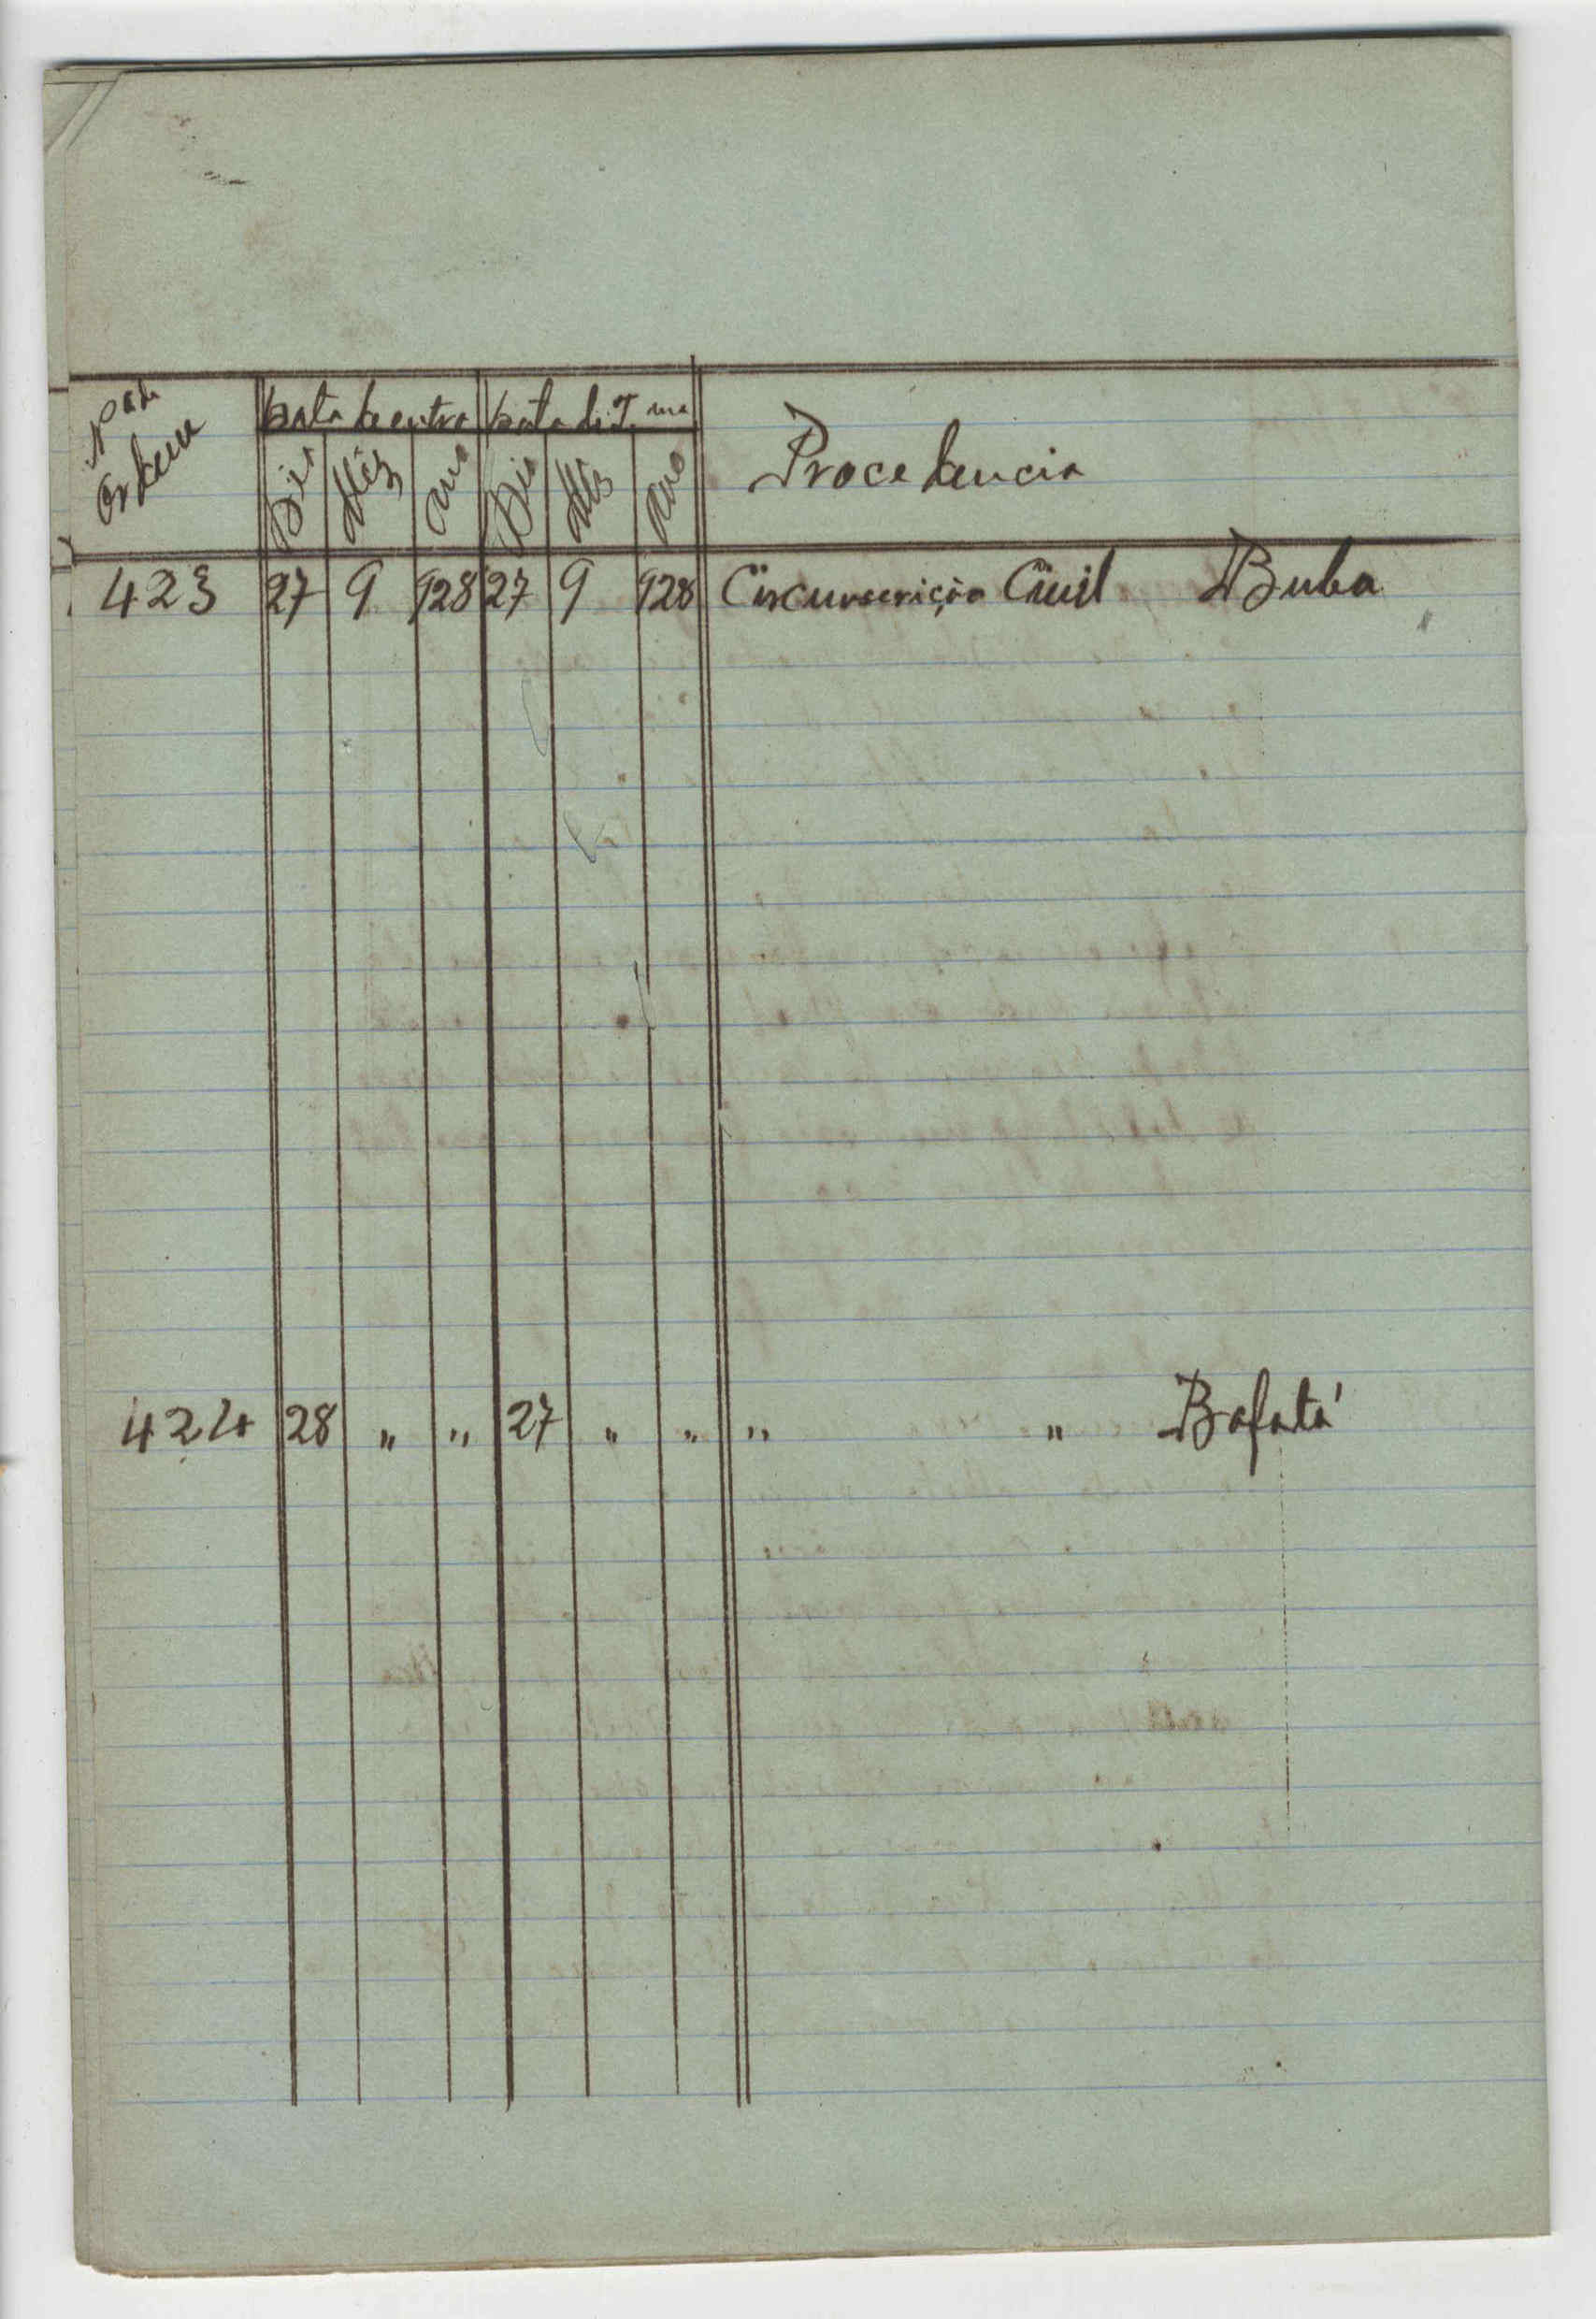 Nº de Data de entra Data do T. ma
Ordem Dia Mês Ano Dia Mês Ano Procedencia
423 27 9 928 27 9 928 Circunscrição Civil Buba
424 28 " " 27 " " " " Bafatá